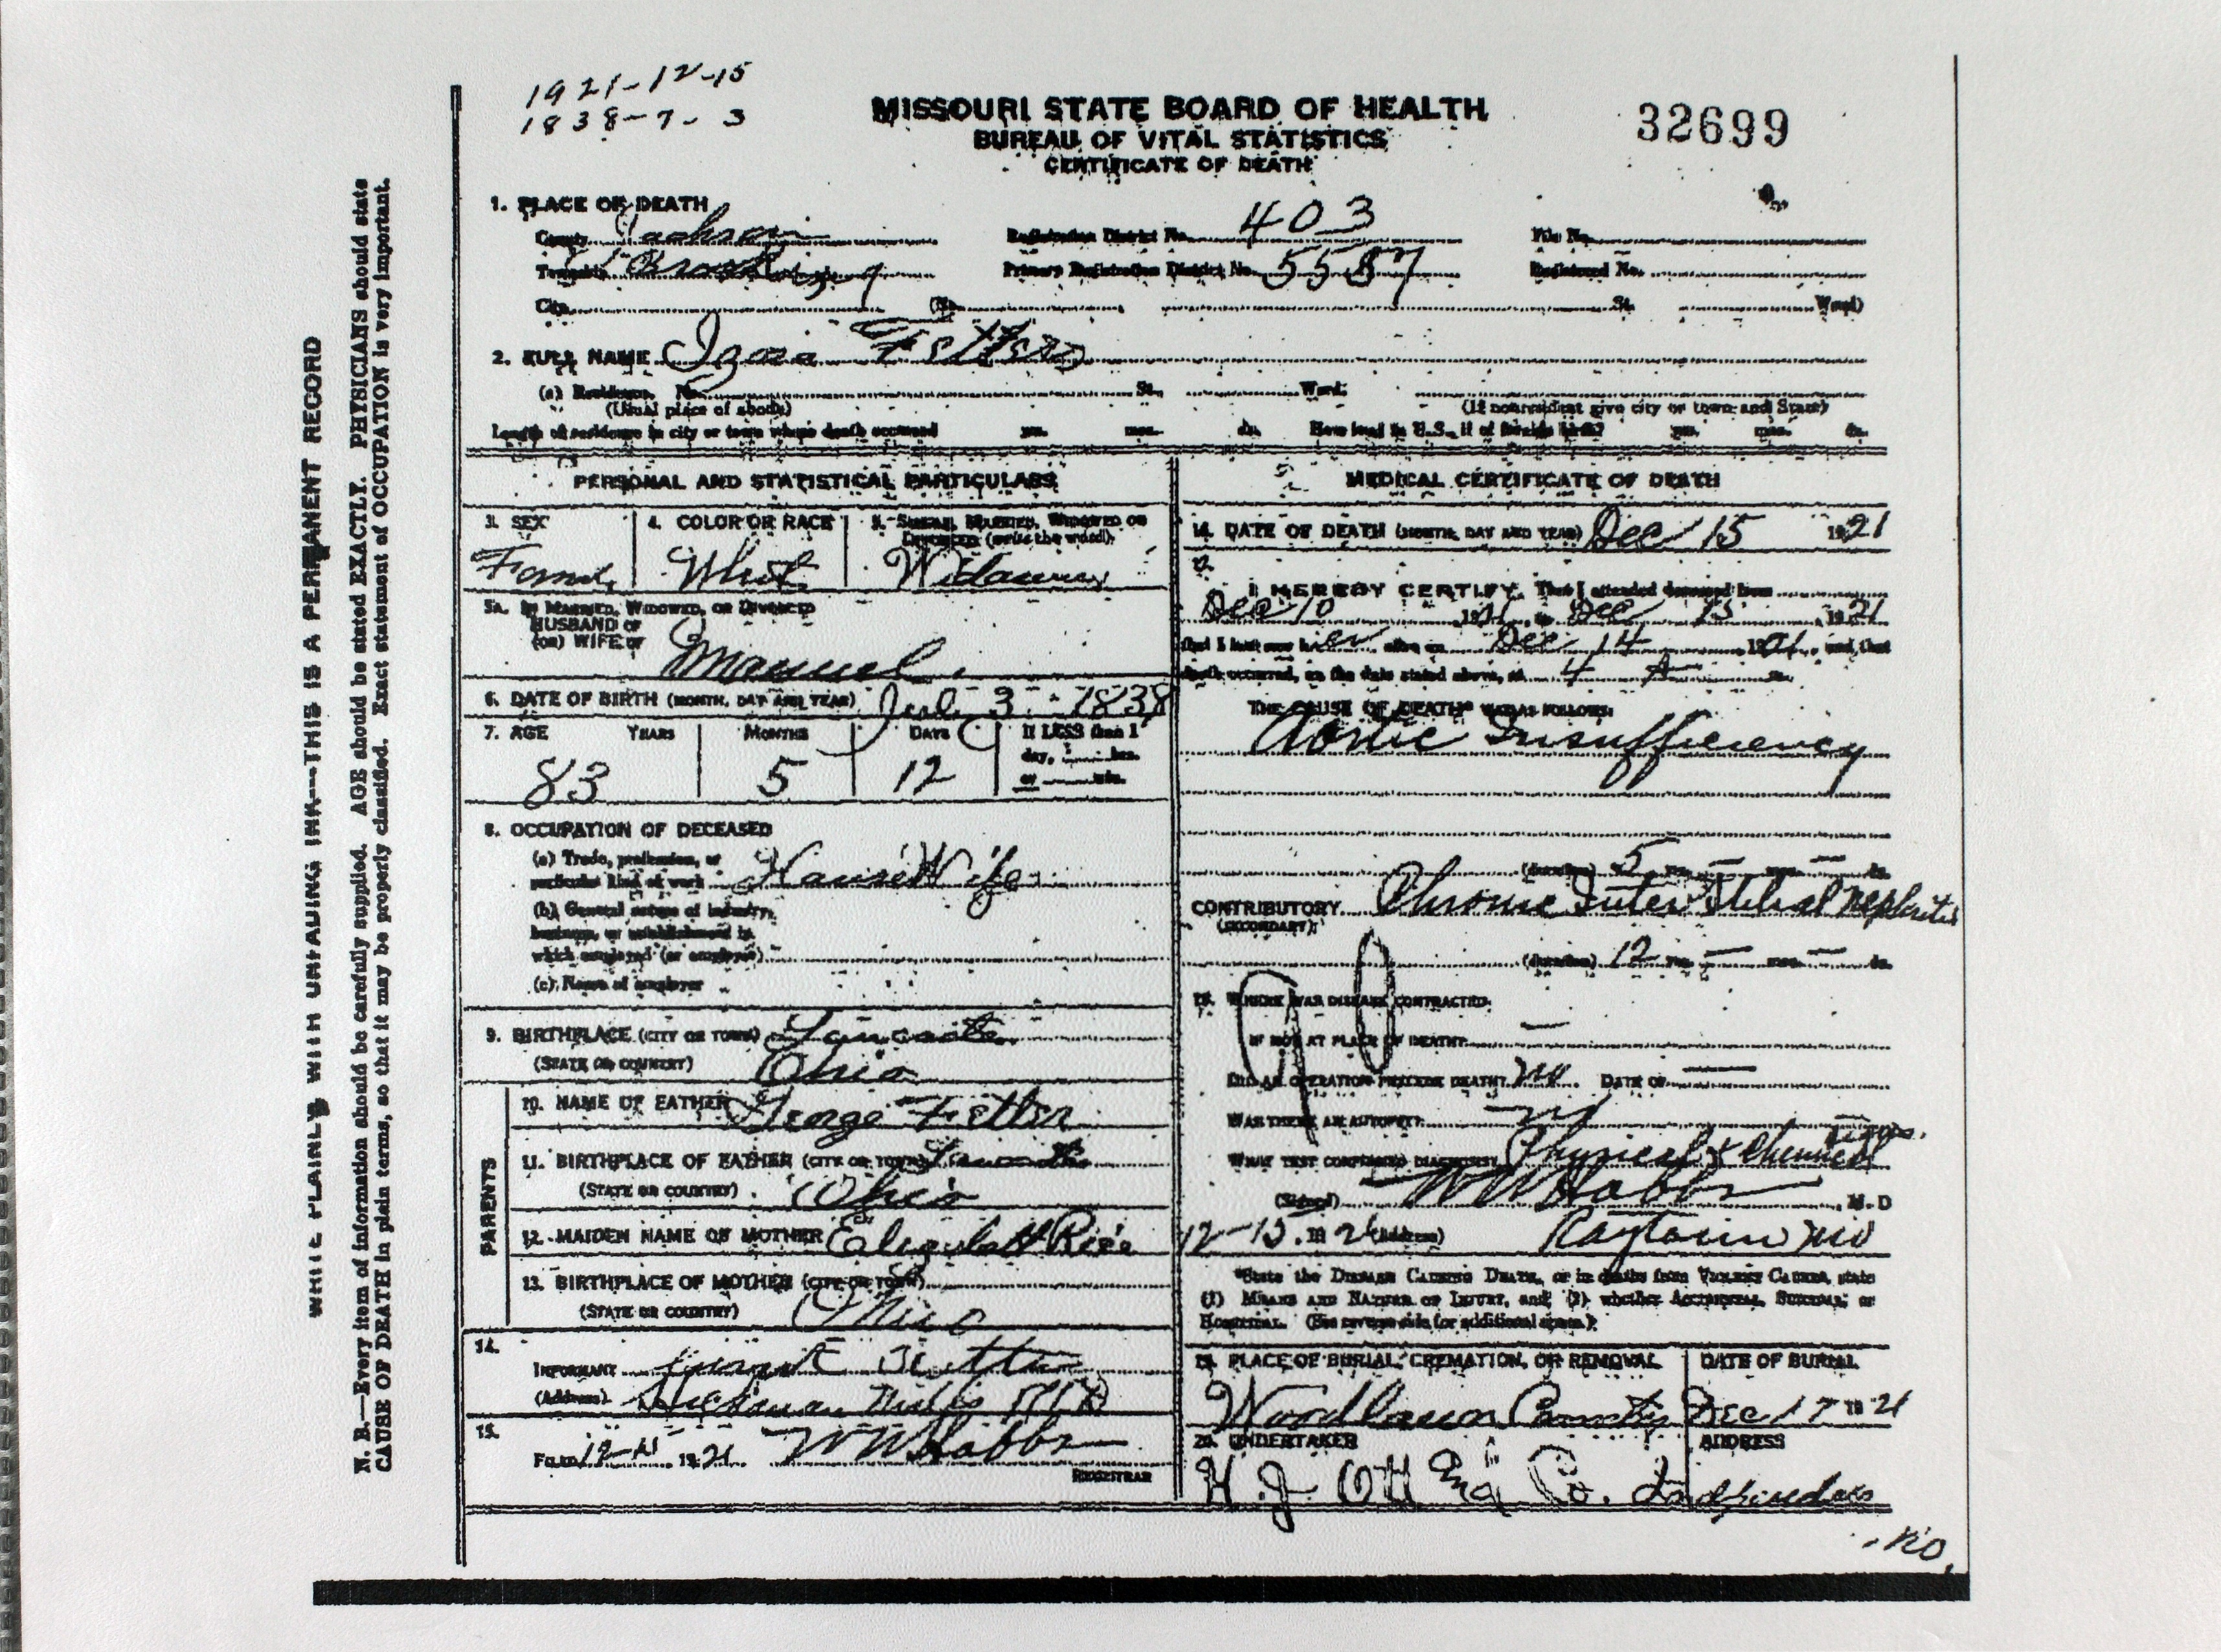 1921-12-15
1838-7-3
MISSOURI STATE BOARD OF HEALTH
BUREAU OF VITAL STATISTICS
CERTIFICATE OF DEATH
32699
WRITE PLAINLY WITH UNFADING INK---THIS IS A PERMANENT RECORD
N. B.—Every item of information should be carefully supplied. AGE should be stated EXACTLY. PHYSICIANS should state
CAUSE OF DEATH in plain terms, so that it may be properly classified. Exact statement of OCCUPATION is very important.
1. PLACE OF DEATH
County Jackson Registration District No. 403 File No.
Township Brooking Primary Registration District No. 5587 Registered No.
City (No. St. Ward)
2. FULL NAME Fetters
(a) Residence. No. St. Ward.
(Usual place of abode) (If nonresident give city or town and State)
Length of residence in city or town where death occurred yrs. mos. ds. How long in U.S., if of foreign birth? yrs. mos. ds.
PERSONAL AND STATISTICAL PARTICULARS
3. SEX 4. COLOR OR RACE 5. SINGLE, MARRIED, WIDOWED OR
DIVORCED (write the word)
Female White Widow
5A. IF MARRIED, WIDOWED, OR DIVORCED
HUSBAND OF
(OR) WIFE OF
6. DATE OF BIRTH (MONTH, DAY AND YEAR) Jul 3 - 1838
7. AGE YEARS MONTHS DAYS If LESS than 1
day, hrs.
or min.
83 5 12
8. OCCUPATION OF DECEASED
(a) Trade, profession, or
particular kind of work House Wife
(b) General nature of industry,
business, or establishment in
which employed (or employer)
(c) Name of employer
9. BIRTHPLACE (CITY OR TOWN) Lancaster
(STATE OR COUNTRY) Ohio
PARENTS
10. NAME OF FATHER George Fetter
11. BIRTHPLACE OF FATHER (CITY OR TOWN) Lancaster
(STATE OR COUNTRY) Ohio
12. MAIDEN NAME OF MOTHER Elizabeth Rice
13. BIRTHPLACE OF MOTHER (CITY OR TOWN)
(STATE OR COUNTRY) Ohio
14.
INFORMANT
(Address) Hickman Mills
15.
FILED 12- 1921 W W Hobbs
REGISTRAR
MEDICAL CERTIFICATE OF DEATH
16. DATE OF DEATH (MONTH, DAY AND YEAR) Dec 15 1921
17.
I HEREBY CERTIFY, That I attended deceased from
Dec 10 1921, to Dec 15 1921
that I last saw her alive on Dec 14 1921, and that
death occurred, on the date stated above, at 4 A m.
THE CAUSE OF DEATH* WAS AS FOLLOWS:
Aortic Insufficiency
(duration) 5 yrs. — mos. — ds.
CONTRIBUTORY Chronic Interstitial Nephritis
(SECONDARY)
(duration) 12 yrs. — mos. — ds.
18. WHERE WAS DISEASE CONTRACTED
IF NOT AT PLACE OF DEATH? —
DID AN OPERATION PRECEDE DEATH? No DATE OF —
WAS THERE AN AUTOPSY?
WHAT TEST CONFIRMED DIAGNOSIS? Physical & Chemical
(Signed) W W Hobbs, M. D
12-15, 1921 (Address) Raytown Mo
*State the DISEASE CAUSING DEATH, or in deaths from VIOLENT CAUSES, state
(1) MEANS AND NATURE OF INJURY, and (2) whether ACCIDENTAL, SUICIDAL, or
HOMICIDAL. (See reverse side for additional space.)
19. PLACE OF BURIAL, CREMATION, OR REMOVAL DATE OF BURIAL
Woodlawn Cemetery Dec 17 1921
20. UNDERTAKER ADDRESS
H. J. Ott and Co. Independence
Mo.